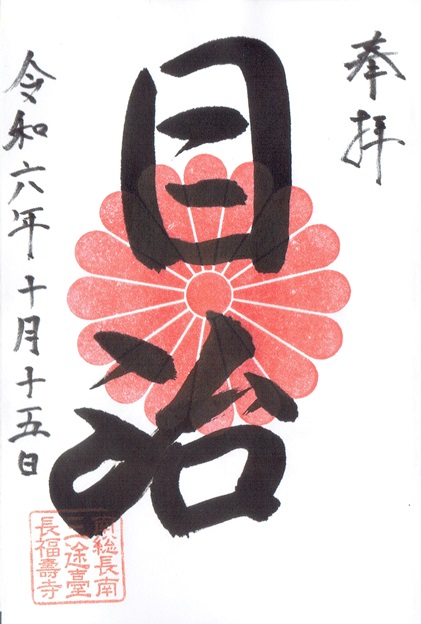 奉拝
目治
令和六年十月十五日
南総長南
三途臺
長福壽寺